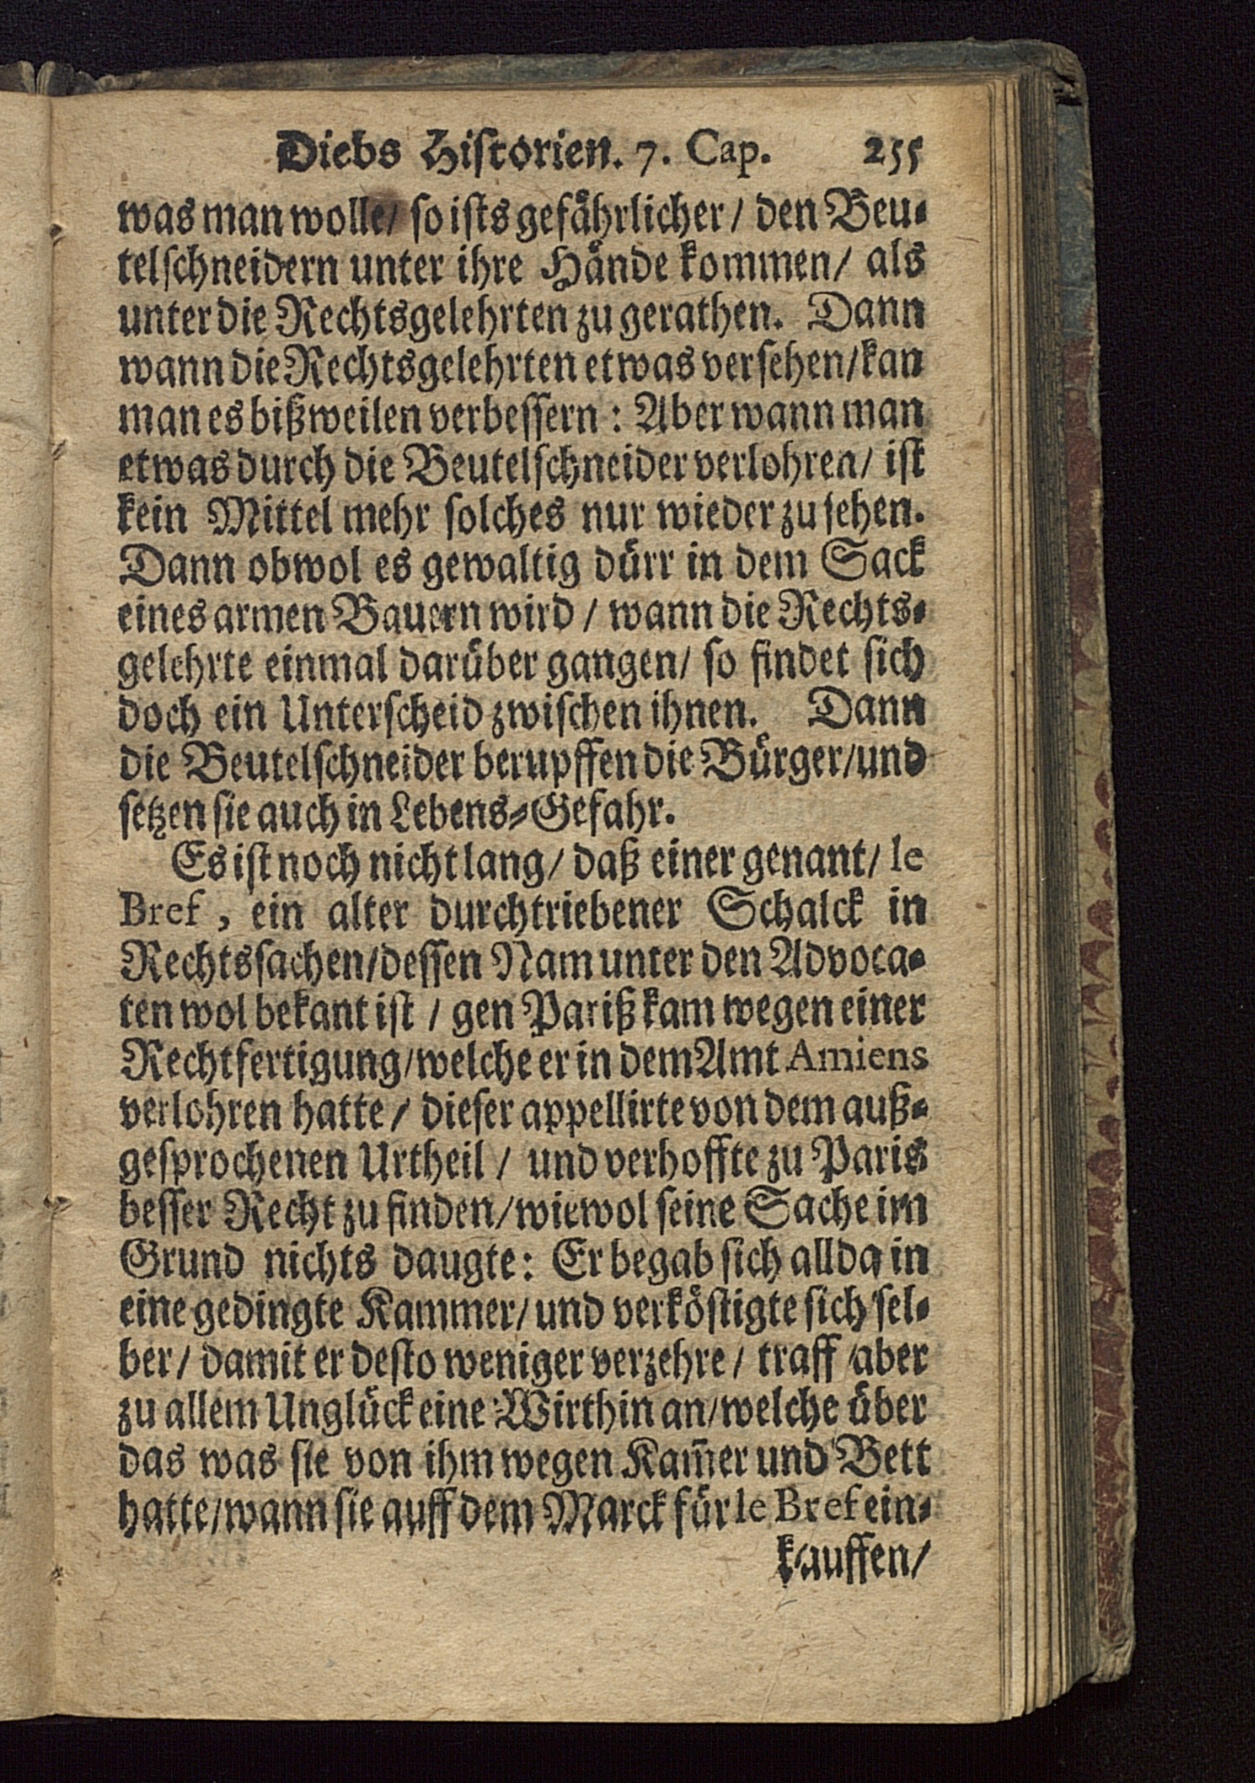 Diebs Historien. 7. Cap. 255
was man wolle/ so ists gefåhrlicher/ den Beu-
telschneidern unter ihre Hånde kommen/ als
unter die Rechtsgelehrten zu gerathen. Dann
wann die Rechtsgelehrten etwas versehen/kan
man es bißweilen verbessern: Aber wann man
etwas durch die Beutelschneider verlohren/ ist
kein Mittel mehr solches nur wieder zu sehen.
Dann obwol es gewaltig dürr in dem Sack
eines armen Bauern wird / wann die Rechts-
gelehrte einmal darüber gangen/ so findet sich
doch ein Unterscheid zwischen ihnen. Dann
die Beutelschneider berupffen die Bürger/und
setzen sie auch in Lebens-Gefahr.
Es ist noch nicht lang/ daß einer genant/ le
Bref, ein alter durchtriebener Schalck in
Rechtssachen/dessen Nam unter den Advoca-
ten wol bekant ist / gen Pariß kam wegen einer
Rechtfertigung/welche er in dem Amt Amiens
verlohren hatte/ dieser appellirte von dem auß-
gesprochenen Urtheil / und verhoffte zu Paris
besser Recht zu finden/wiewol seine Sache im
Grund nichts daugte: Er begab sich allda in
eine gedingte Kammer/und verköstigte sich sel-
ber/ damit er desto weniger verzehre/ traff aber
zu allem Unglück eine Wirthin an/welche über
das was sie von ihm wegen Kam̄er und Bett
hatte/wann sie auff dem Marck für le Bref ein-
kauffen/